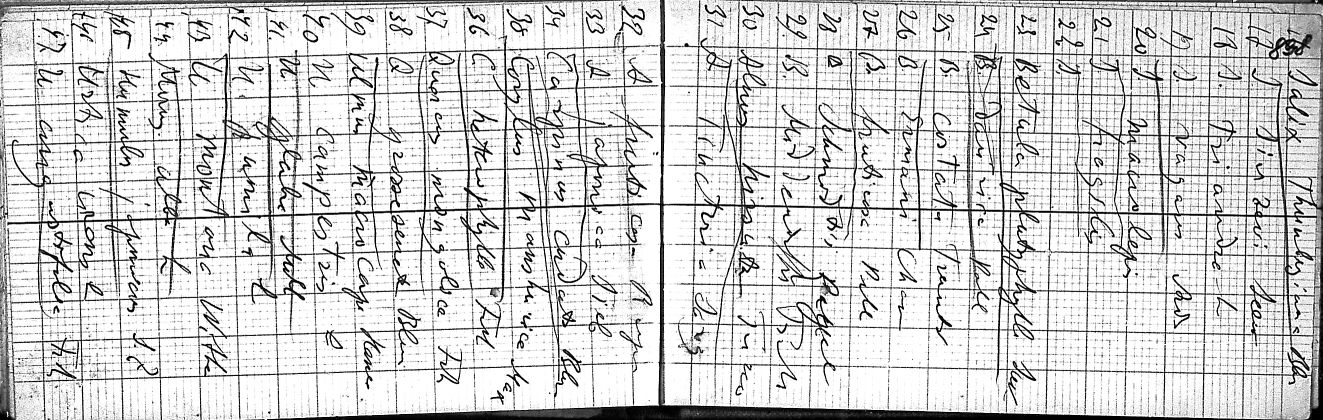 16 Salix Thunbergiana Bl
17 S. Siuzevi Seem
18 S. Triandra L
19 S. vagans And
20 S macrolepis
21 S fragilis
22 S.
23 Betula platyphylla Suk
24 B. davurica Pall
25 B costata Trautv
26 B Ermani Cham
27 B fruticosa Pall
28 B Schmidtii Regel
29 B. Middendorffii
30 Alnus hirsuta Turcz
31 A Tinctoria Sarg
32 A fruticosa Rupr
33 A japonica Sieb
34 Carpinus cordata Bl
35 Corylus Manshurica Max
36 C heterophylla Fisch
37 Quercus mongolica Fisch
38 Q grosseserrata Blum
39 Ulmus macrocarpa Hance
40 U campestris L
41 U glabra Mill
42 U. pumila L
43 U montana With
44 Morus alba L
45 Humulus japonicus S Z
46 Urtica urens L
47 U angustifolia Fisch